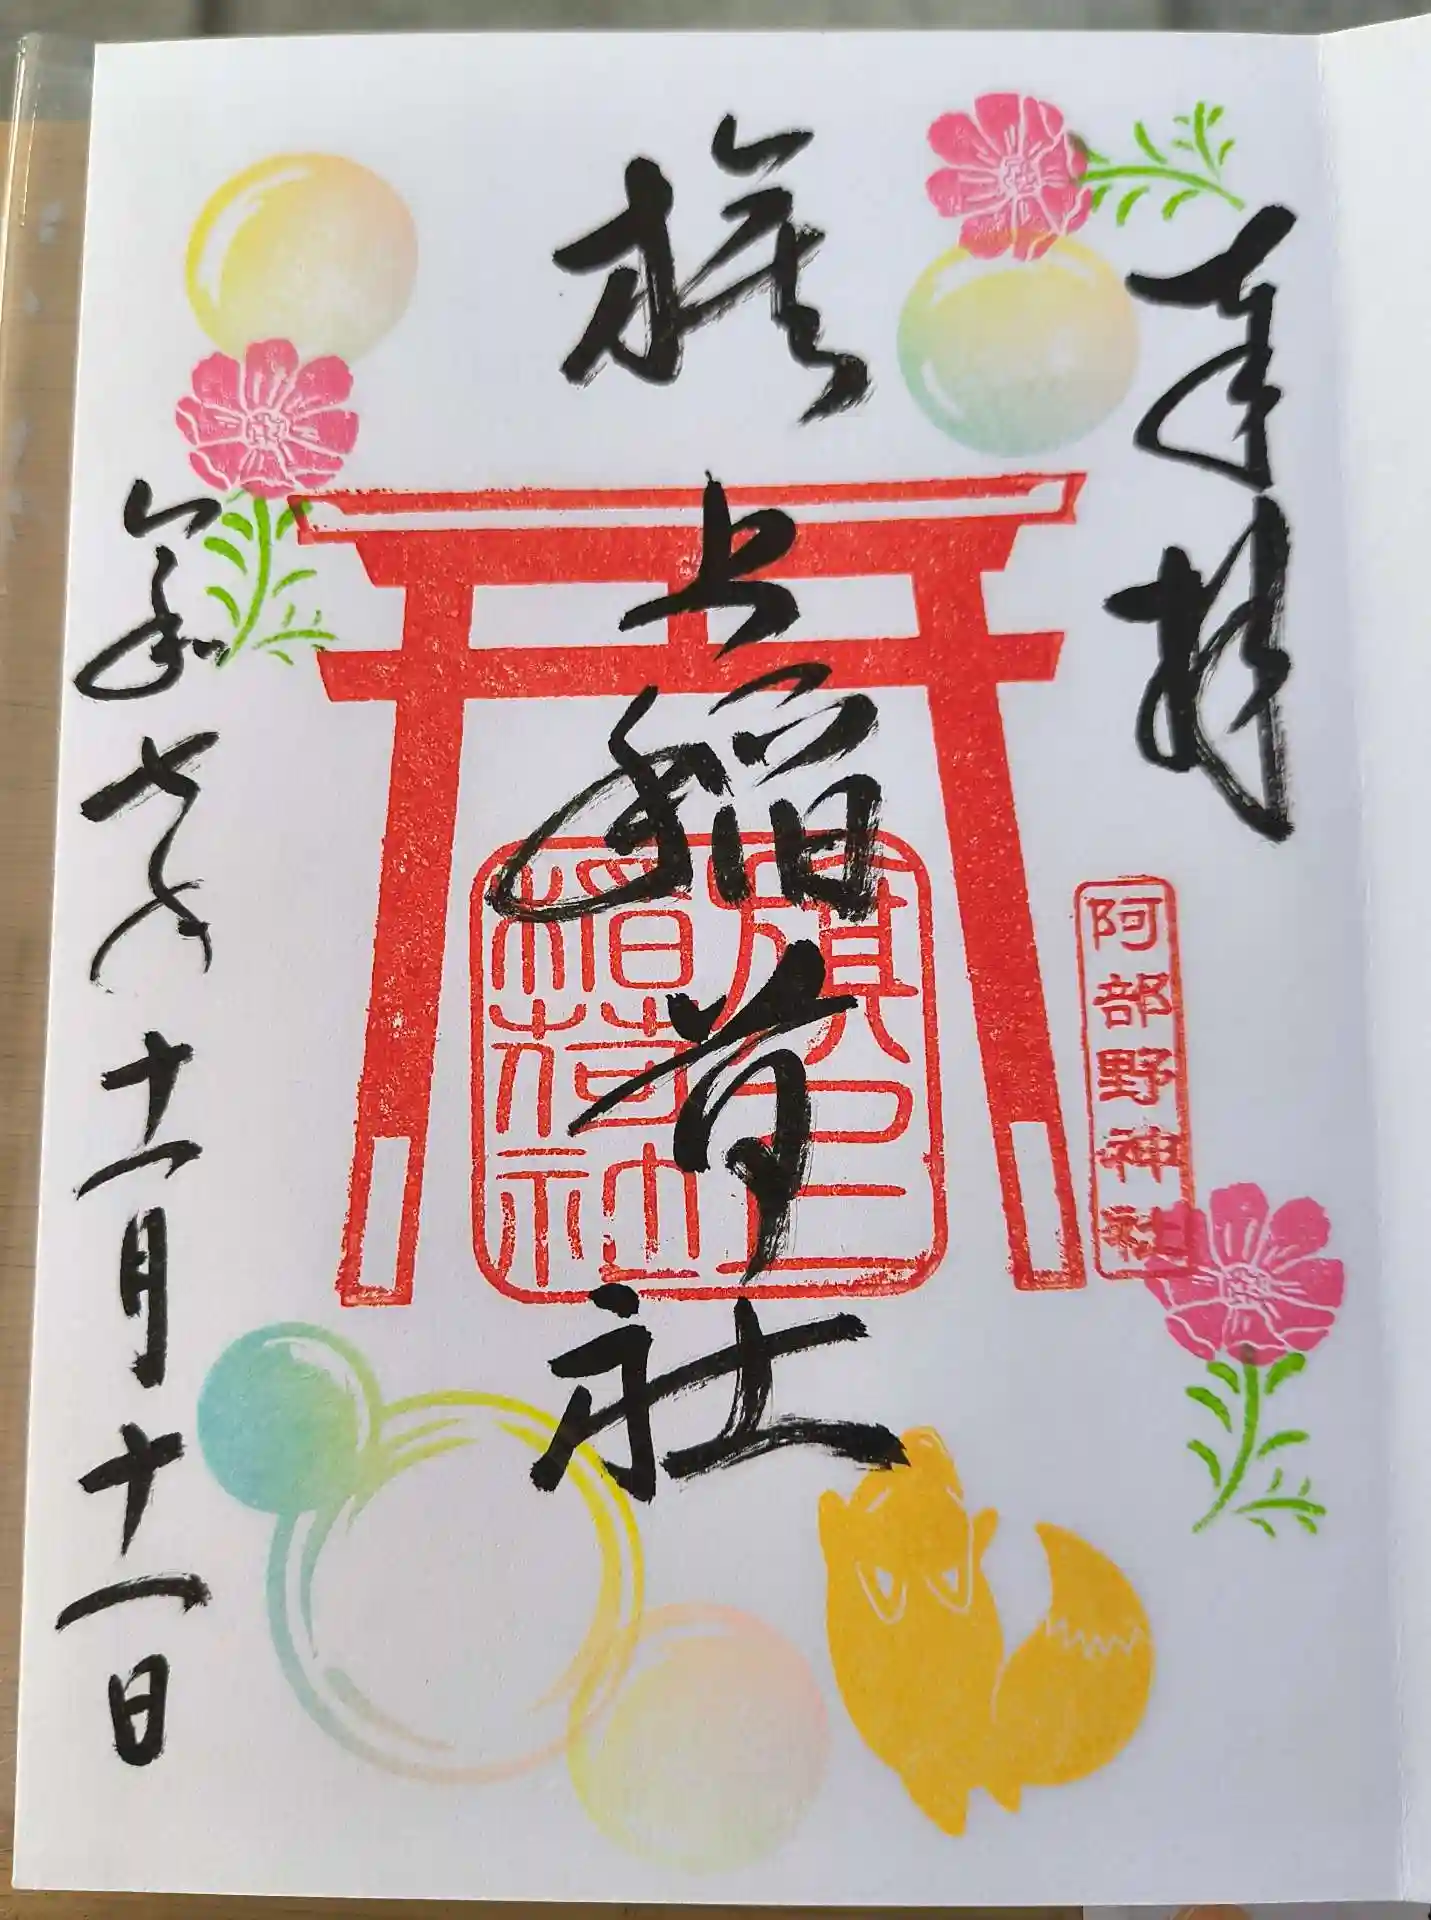 奉拝
阿部野神社
旗上稲荷社
旗上
稲荷社
令和七年十一月十一日